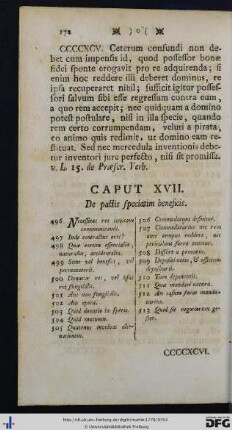 172 ☼ )o( ☼
CCCCXCV. Ceterum confundi non debet
cum impensa id, quod possessor bonae
fidei sponte erogavit pro re adquirenda; si
enim hoc reddere illi deberet dominus, re
ipsa recuperaret nihil; sufficit igitur possessori
salvum sibi esse regressum contra eum,
a quo rem accepit; nec quidquam a domino
potest postulare, nisi in illa specie, quando
rem certo corrumpendam, veluti a pirata,
eo animo quis redimit, ut domino eam restituat.
Sed nec mercedula inventionis debetur
inventori jure perfecto, nisi sit promissa.
v. l. 15. de Præscr. Verb.
CAPUT XVII.
De pactis speciatim beneficis.
496 Necessitas res invicem communicandi.
497 Inde contractus orti?
498 Quæ eorum essentialia, naturalia, accidentalia.
499 Sunt vel benefici, vel permutatorii.
500 Donatio rei, vel rei fungibilis.
501 Aut non fungibilis.
502 Aut operæ.
503 Quid donatio in specie.
504 Quid mutuum.
505 Quatenus mutuum
506 Commodatum definitur.
507
508 Differt a precario.
509 Depositum, & officium depositarii.
510
511 Quid mandati natura.
512 An casum ferat mandatarius.
513 Quid sit negotiorum gestio.
CCCCXCVI.
© Universitätsbibliothek Freiburg
DFG